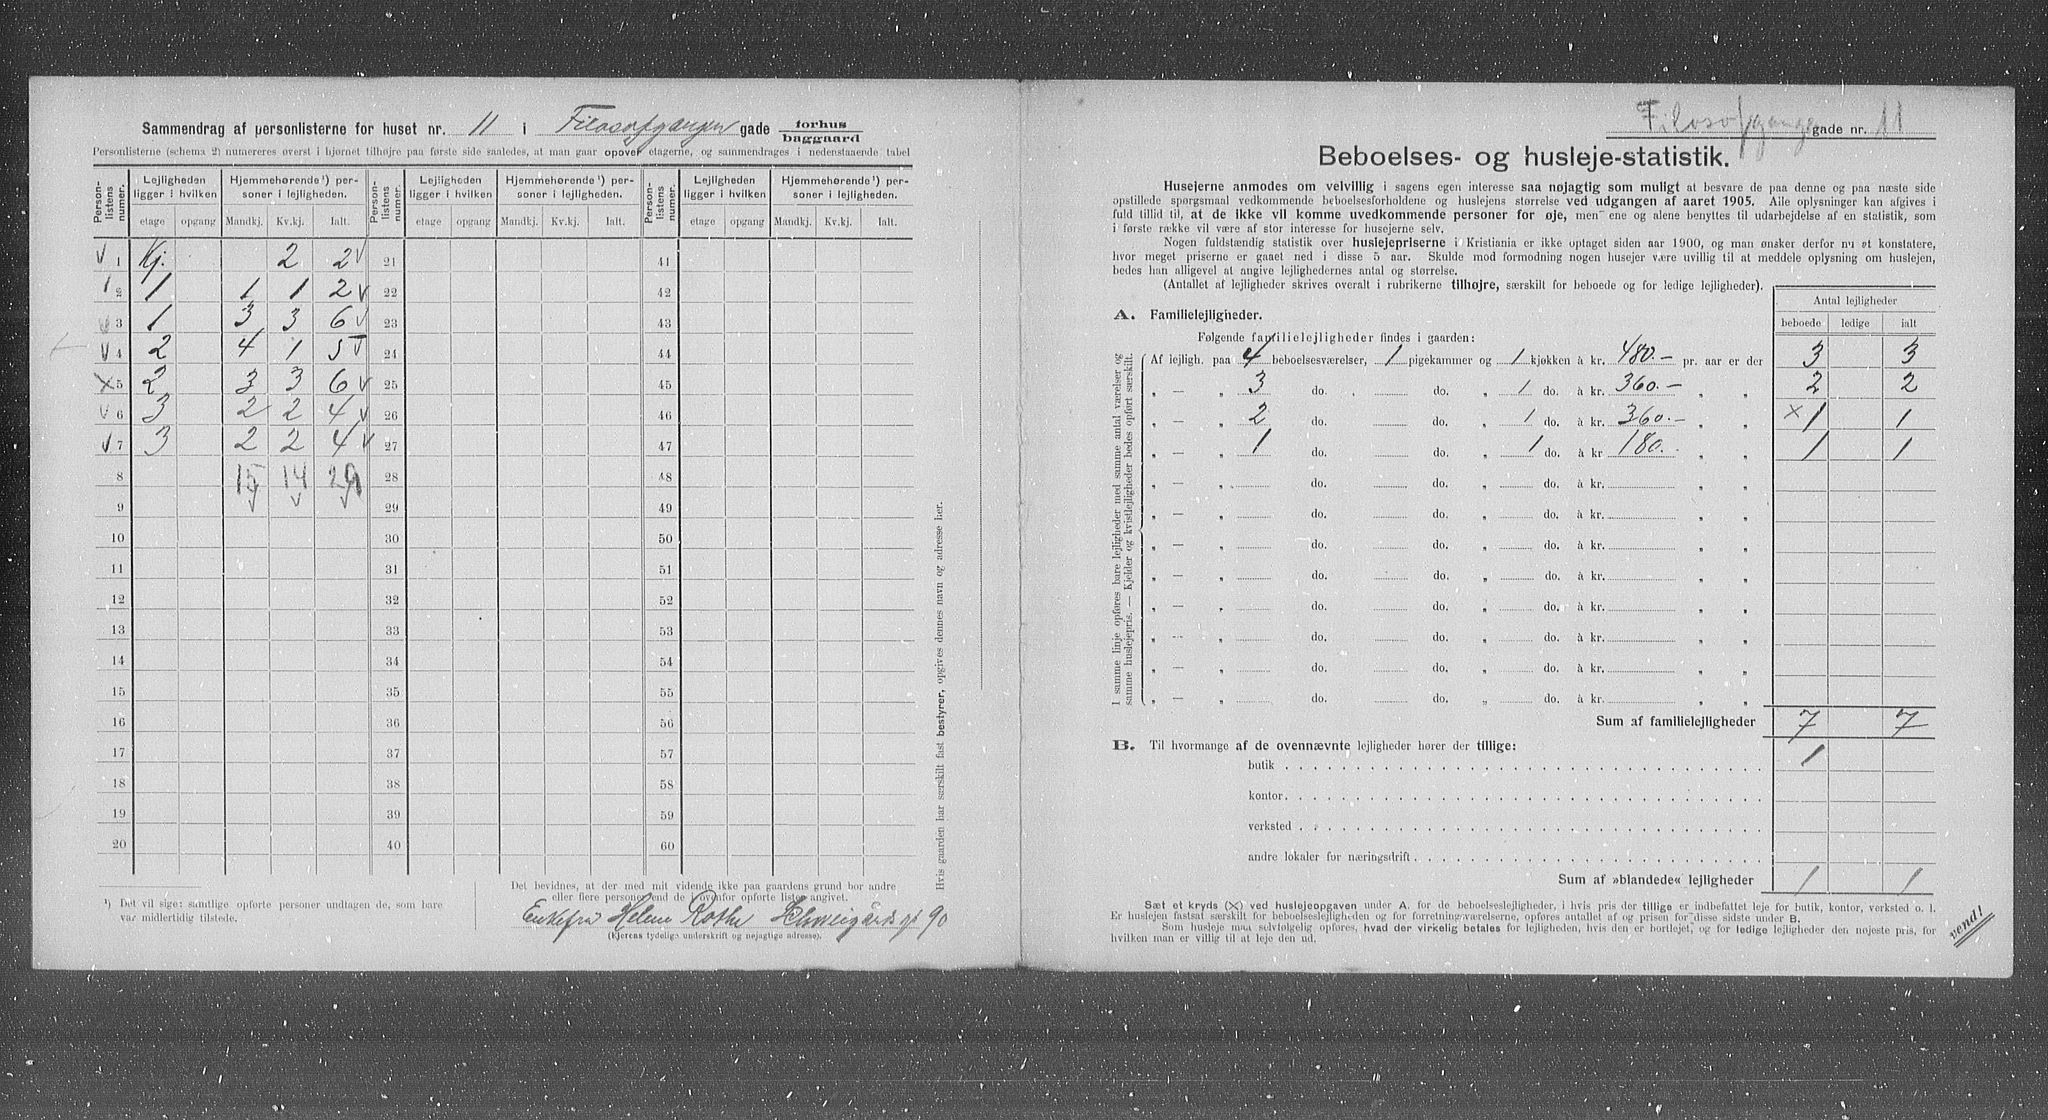 Sammendrag af personlisterne for huset nr. 11 i Filosofgangen gade forhus baggaard
Personlisterne (schema 2) numereres øverst i hjørnet tilhøjre paa første side saaledes, at man gaar opover etagerne, og sammendrages i nedenstaaende tabel
Person-listens numer. Lejligheden ligger i hvilken Hjemmehørende¹) personer i lejligheden. Person-listens numer. Lejligheden ligger i hvilken Hjemmehørende¹) personer i lejligheden. Person-listens numer. Lejligheden ligger i hvilken Hjemmehørende¹) personer i lejligheden.
etage opgang Mandkj. Kv.kj. Ialt. etage opgang Mandkj. Kv.kj. Ialt. etage opgang Mandkj. Kv.kj. Ialt.
1 Kj. 2 2 21 41
2 1 1 1 2 22 42
3 1 3 3 6 23 43
4 2 4 1 5 24 44
5 2 3 3 6 25 45
6 3 2 2 4 26 46
7 3 2 2 4 27 47
8 15 14 29 28 48
9 29 49
10 30 50
11 31 51
12 32 52
13 33 53
14 34 54
15 35 55
16 36 56
17 37 57
18 38 58
19 39 59
20 40 60
¹) Det vil sige: samtlige opførte personer undtagen de, som bare
var midlertidig tilstede.
Det bevidnes, at der med mit vidende ikke paa gaardens grund bor andre
eller flere personer end de i ovenfor opførte lister angivet.
Enkefru Helene Rothe Schweigårdsgt 90
(Ejerens tydelige underskrift og nøjagtige adresse).
Hvis gaarden har særskilt fast bestyrer, opgives dennes navn og adresse her.
Filosofgangen gade nr. 11
Beboelses- og husleje-statistik.
Husejerne anmodes om velvillig i sagens egen interesse saa nøjagtig som muligt at besvare de paa denne og paa næste side
opstillede spørgsmaal vedkommende beboelsesforholdene og huslejens størrelse ved udgangen af aaret 1905. Alle oplysninger kan afgives i
fuld tillid til, at de ikke vil komme uvedkommende personer for øje, men ene og alene benyttes til udarbejdelse af en statistik, som
i første række vil være af stor interesse for husejerne selv.
Nogen fuldstændig statistik over huslejepriserne i Kristiania er ikke optaget siden aar 1900, og man ønsker derfor nu at konstatere,
hvor meget priserne er gaaet ned i disse 5 aar. Skulde mod formodning nogen husejer være uvillig til at meddele oplysning om huslejen,
bedes han alligevel at angive lejlighedernes antal og størrelse.
(Antallet af lejligheder skrives overalt i rubrikerne tilhøjre, særskilt for beboede og for ledige lejligheder).
Antal lejligheder
beboede ledige ialt
A. Familielejligheder.
Følgende familielejligheder findes i gaarden:
I samme linje opføres bare lejligheder med samme antal værelser og
samme huslejepris. — Kjelder og kvistlejligheder bedes opført særskilt.
Af lejligh. paa 4 beboelsesværelser, 1 pigekammer og 1 kjøkken à kr. 480.- pr. aar er der 3 3
„ — „ 3 do. do. „ 1 do. à kr. 360.- „ „ 2 2
„ — „ 2 do. do. „ 1 do. à kr. 360.- „ „ × 1 1
„ — „ 1 do. do. „ 1 do. à kr 180. „ „ 1 1
„ — „ do. do. „ do. à kr. „ „
„ — „ do. do. „ do. à kr. „ „
„ — „ do. do. „ do. à kr. „ „
„ — „ do. do. „ do. à kr. „ „
„ — „ do. do. „ do. à kr. „ „
„ — „ do. do. „ do. à kr. „ „
„ — „ do. do. „ do. à kr. „ „
„ — „ do. do. „ do. à kr. „ „
Sum af familielejligheder 7 7
B. Til hvormange af de ovennævnte lejligheder hører der tillige:
butik 1
kontor
verksted
andre lokaler for næringsdrift
Sum af »blandede« lejligheder 1 1
Sæt et kryds (×) ved huslejeopgaven under A. for de beboelseslejligheder, i hvis pris der tillige er indbefattet leje for butik, kontor, verksted o. l.
Er huslejen fastsat særskilt for beboelseslejligheden og for forretningsværelserne, opføres antallet af og prisen for disse sidste under B.
Som husleje maa selvfølgelig opføres, hvad der virkelig betales for lejligheden, hvis den er bortlejet, og for ledige lejligheder den nøjeste pris, for
hvilken man er villig til at leje den ud.
vend!